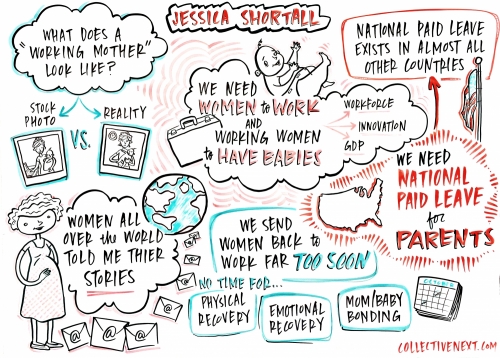 JESSICA SHORTALL
WHAT DOES A
"WORKING MOTHER"
LOOK LIKE?
STOCK
PHOTO
VS.
REALITY
WE NEED
WOMEN to WORK
AND
WORKING WOMEN
to HAVE BABIES
WORKFORCE
INNOVATION
GDP
NATIONAL PAID LEAVE
EXISTS IN ALMOST ALL
OTHER COUNTRIES
WE NEED
NATIONAL
PAID LEAVE
for
PARENTS
WOMEN ALL
OVER the WORLD
TOLD ME THIER
STORIES
@
@
@
@
WE SEND
WOMEN BACK to
WORK FAR TOO SOON
NO TIME FOR...
PHYSICAL
RECOVERY
EMOTIONAL
RECOVERY
MOM/BABY
BONDING
OCTOBER
COLLECTIVENEXT.COM